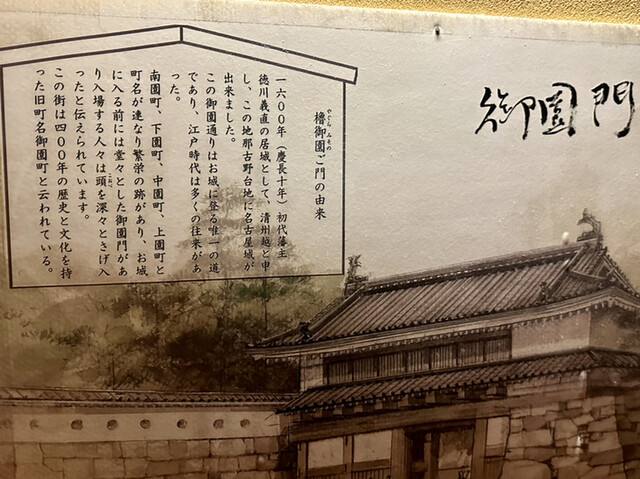 御園門
櫓御園ご門の由来
一六〇〇年（慶長十年）初代藩主
徳川義直の居城として、清州越と申
し、この地那古野台地に名古屋城が
出来ました。
この御園通りはお城に登る唯一の道
であり、江戸時代は多くの往来があ
った。
南園町、下園町、中園町、上園町と
町名が連なり繁栄の跡があり、お城
に入る前には堂々とした御園門があ
り入場する人々は頭を深々とさげ入
ったと伝えられています。
この街は四〇〇年の歴史と文化を持
った旧町名御園町と云われている。